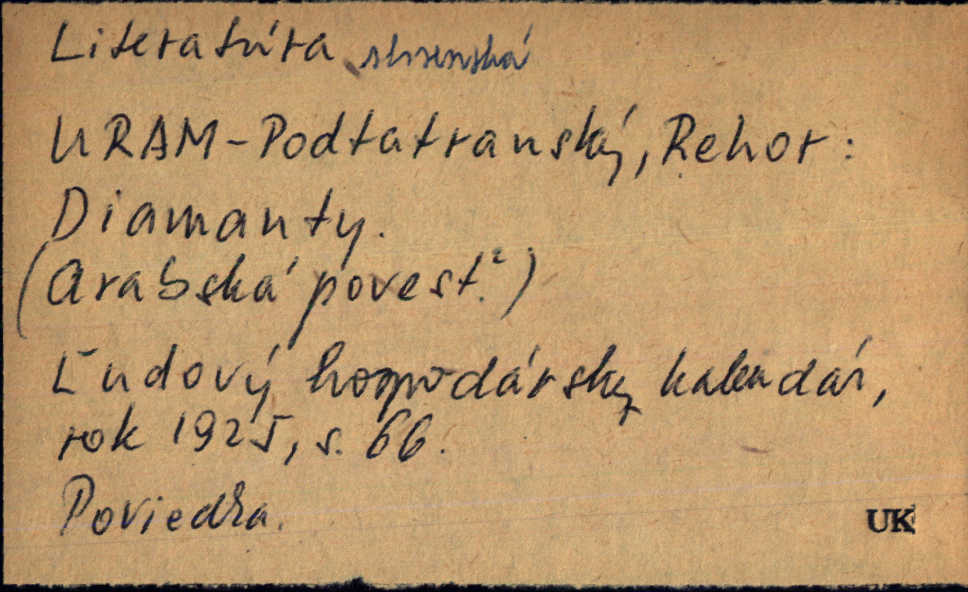 Literatúra slovenská
URAM-Podtatranský, Rehor:
Diamanty.
(Arabská povesť.)
Ľudový hospodársky kalendár,
rok 1925, s. 66.
Poviedka.
UK